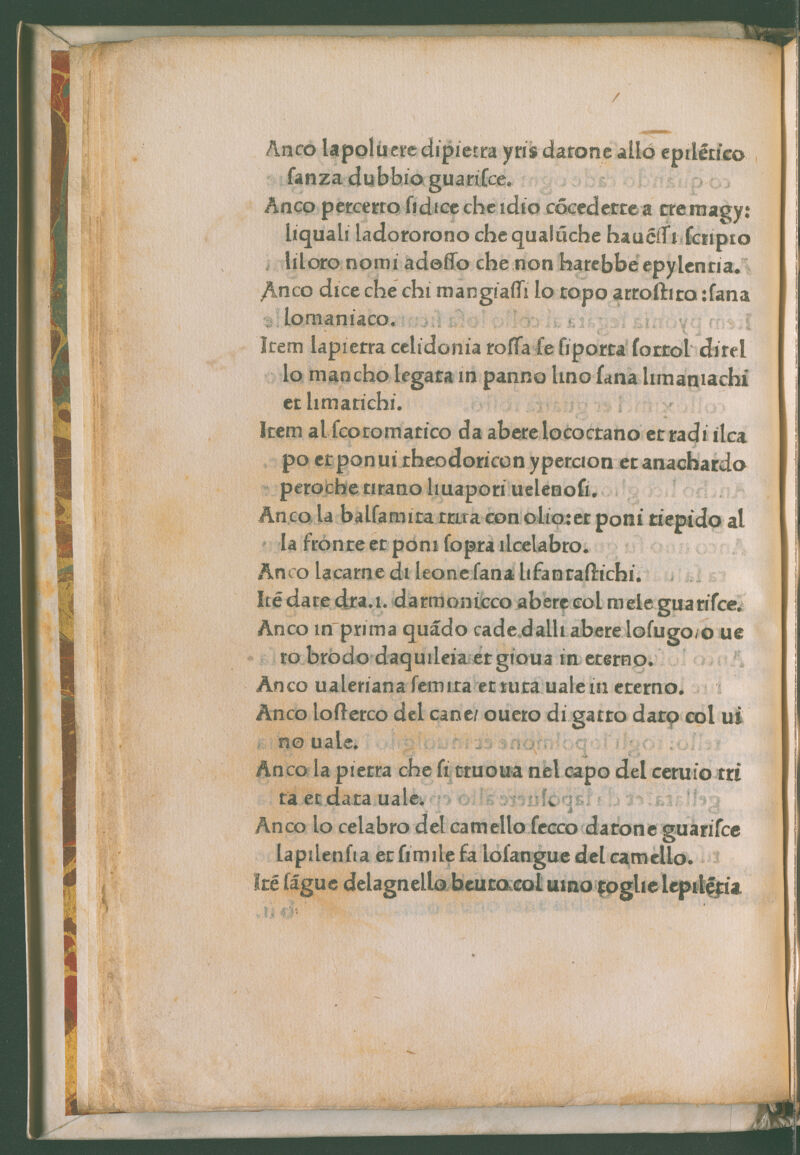 Anco lapoluere dipietra yris datone allo epilético
ſanza dubbio guariſce.
Anco percerto ſidice che idio cōcedette a tre magy:
liquali ladororono che qualūche hauéſſi ſcripto
liloro nomi adoſſo che non harebbe epylentia.
Anco dice che chi mangiaſſi lo topo arroſtito :ſana
lomaniaco.
Item lapietra celidonia roſſa ſe ſiporta ſottol ditel
lo mancho legata in panno lino ſana limaniachi
et limatichi.
Item al ſcotomatico da abere lococtano et radi ilca
po et ponui theodoricon ypercion et anachardo
peroche tirano liuapori uelenoſi.
Anco la balſamita trita con olio:et poni tiepido al
la fronte et poni ſopra ilcelabro.
Anco lacarne di leone ſana lifantaſtichi.
Ité date dra.1. darmonicco abere col mele guariſce.
Anco in prima quādo cade dalli abere loſugo/o ue
ro brodo daquileia et gioua in eterno.
Anco ualeriana ſemita et ruta uale in eterno.
Anco loſterco del cane/ ouero di gatto dato col ui
no uale.
Anco la pietra che ſi truoua nel capo del ceruio tri
ta et data uale.
Anco lo celabro del camello ſecco datone guariſce
lapilenſia et ſimile fa loſangue del camello.
Ité ſāgue delagnello beuto col uino toglie lepilétia